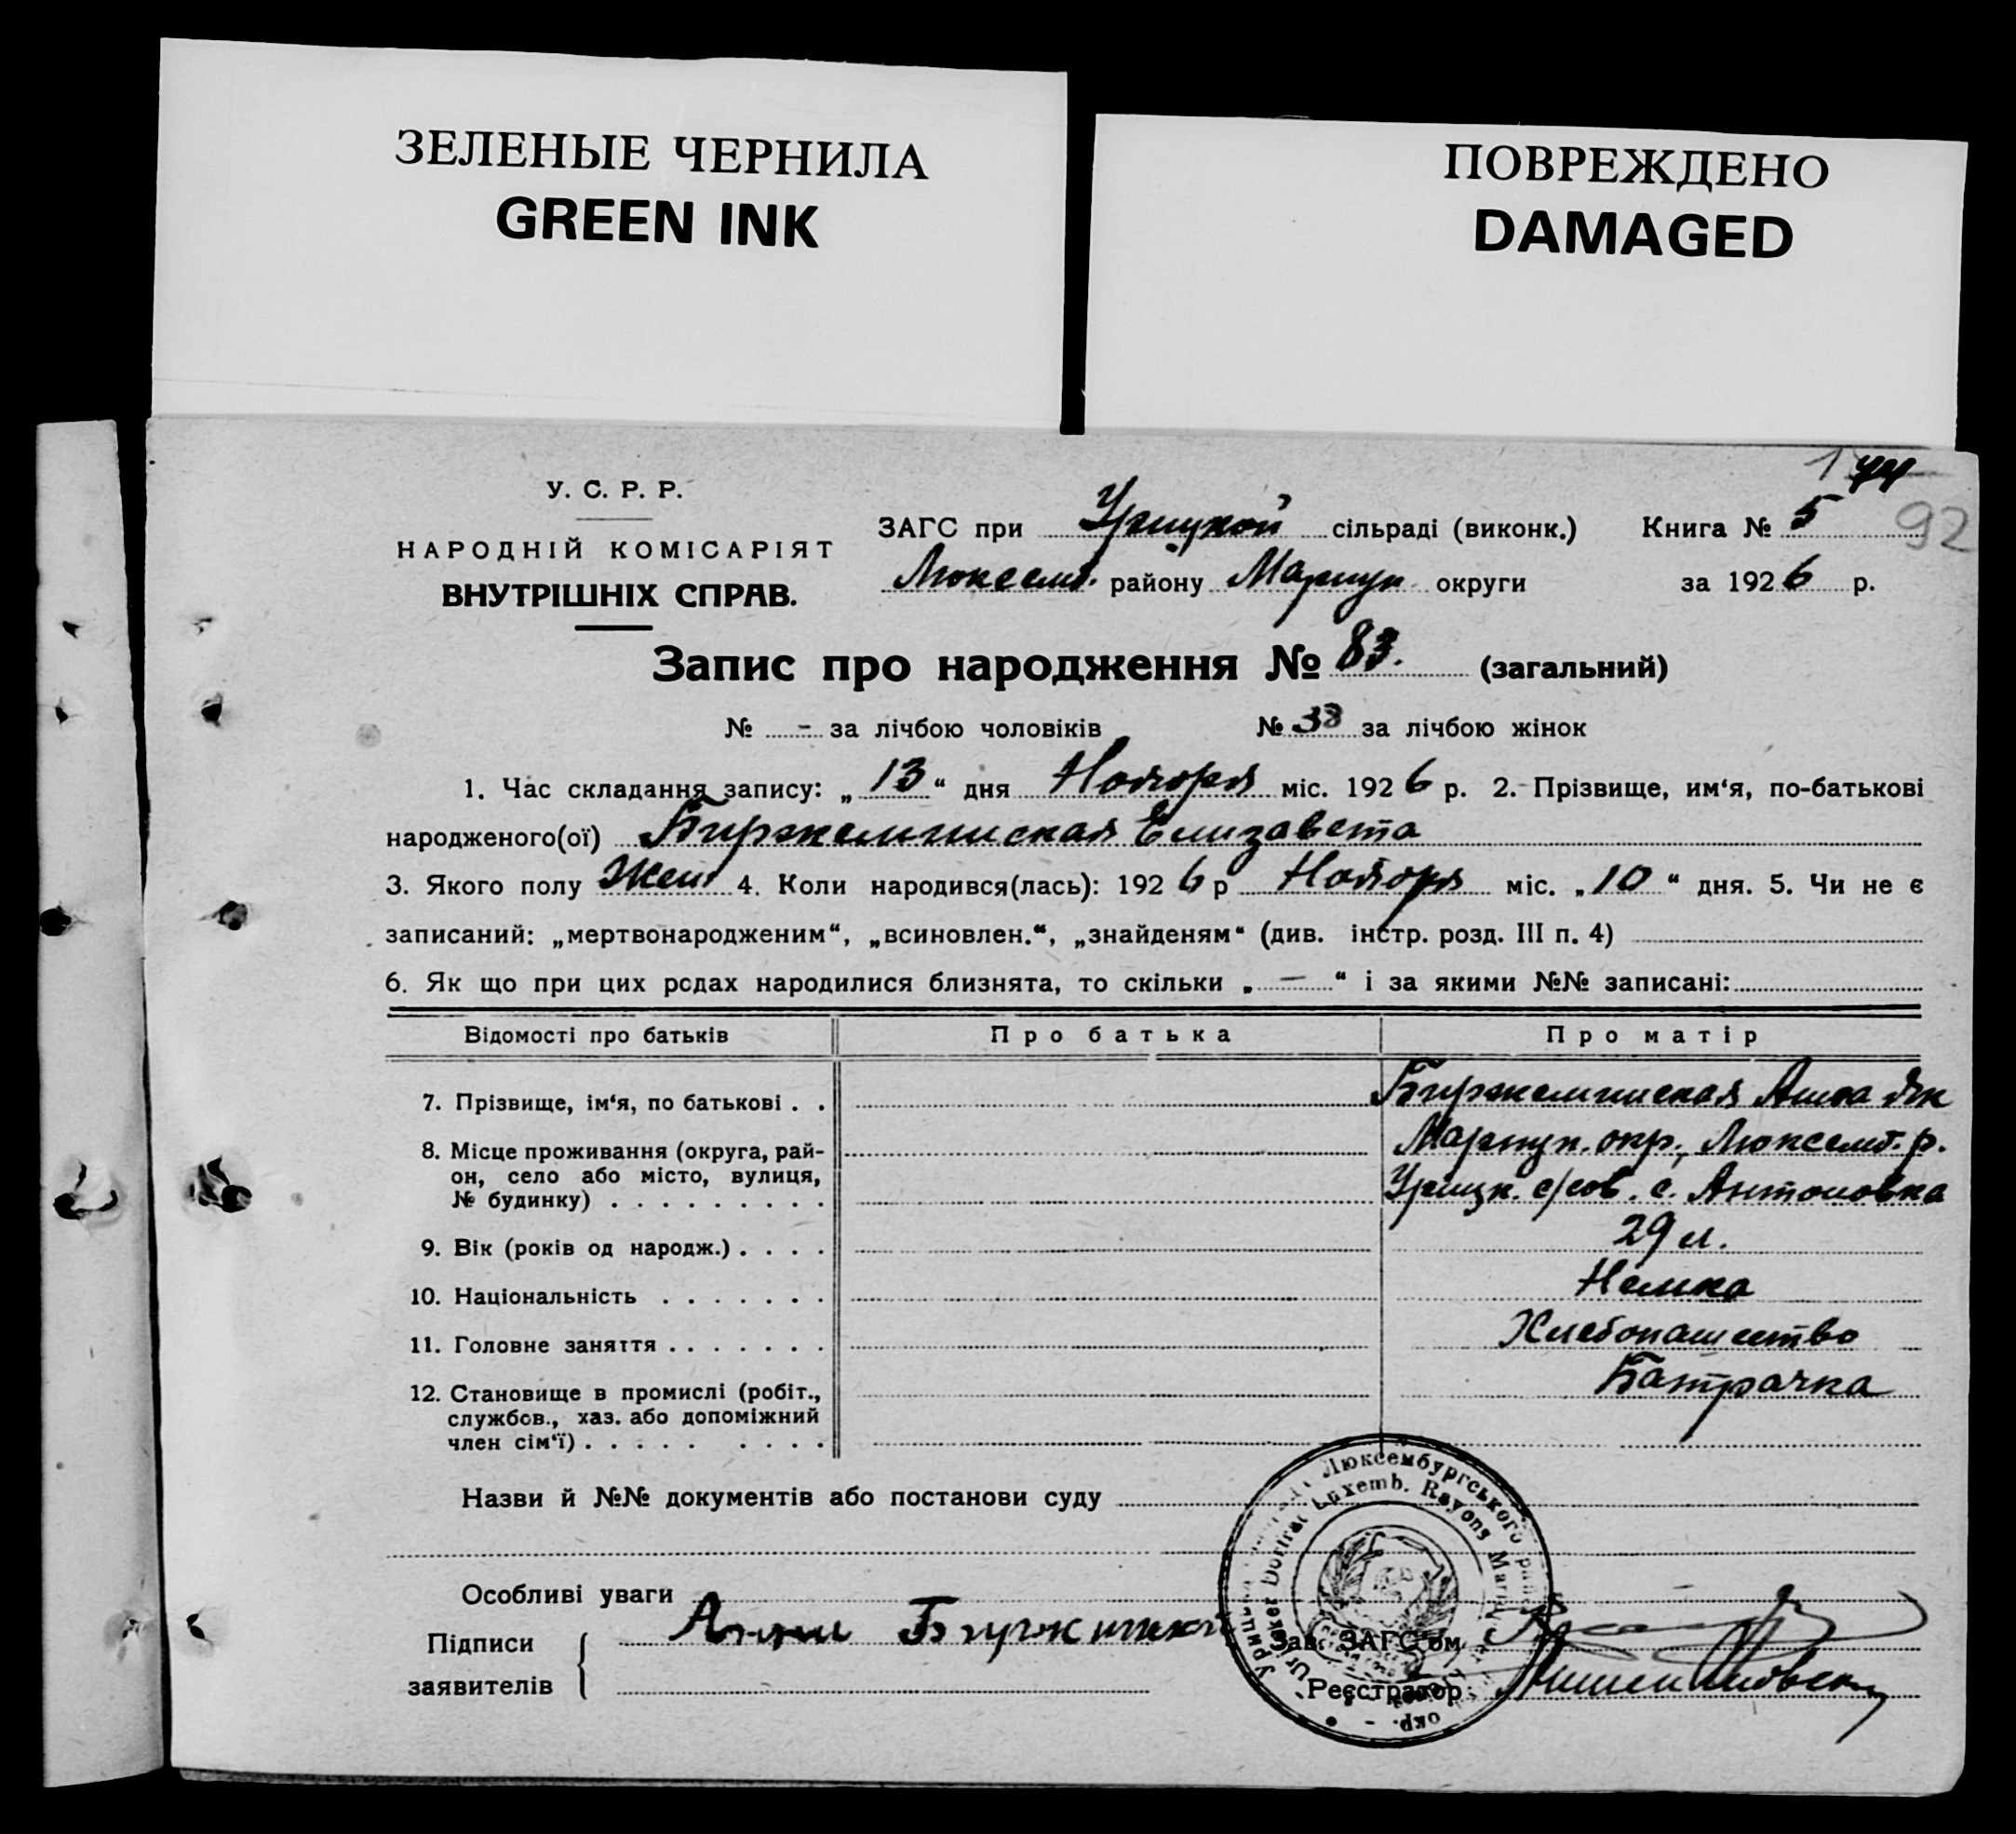 ЗЕЛЕНЫЕ ЧЕРНИЛА
GREEN INK
ПОВРЕЖДЕНО
DAMAGED
92
У. С. Р. Р.
НАРОДНІЙ КОМІСАРІЯТ
ВНУТРІШНІХ СПРАВ.
ЗАГС при Урицкой сільраді (виконк.) Книга № 5
Люксемб. району Мариуп. округи за 1926 р.
Запис про народження № 83. (загальний)
№ - за лічбою чоловіків № 38 за лічбою жінок
1. Час складання запису: „13“ дня Ноября міс. 1926 р. 2. Прізвище, им‘я, по-батькові
народженого(ої) Елизавета
3. Якого полу Жен 4. Коли народився(лась): 1926 р Ноября міс. „10“ дня. 5. Чи не є
записаний: „мертвонародженим“, „всиновлен.“, „знайденям“ (див. інстр. розд. III п. 4)
6. Як що при цих родах народилися близнята, то скільки „—“ і за якими №№ записані:
Відомості про батьків Про батька Про матір
7. Прізвище, ім‘я, по батькові . . Анна Як
8. Місце проживання (округа, рай- Мариуп. окр., Люксемб. р.
он, село або місто, вулиця, Урицк. с/сов. с. Антоновка
№ будинку) . . . . . . . . .
9. Вік (років од народж.) . . . . 29 л.
10. Національність . . . . . . . Немка
11. Головне заняття . . . . . . . Хлебопашество
12. Становище в промислі (робіт., Батрачка
службов., хаз. або допоміжний
член сім‘ї) . . . . . . . . .
Назви й №№ документів або постанови суду
Особливі уваги
Підписи Анна
заявителів
Зав. ЗАГС‘ом
Реєстратор
Люксембургського
Luxemb. Rayons
окр.